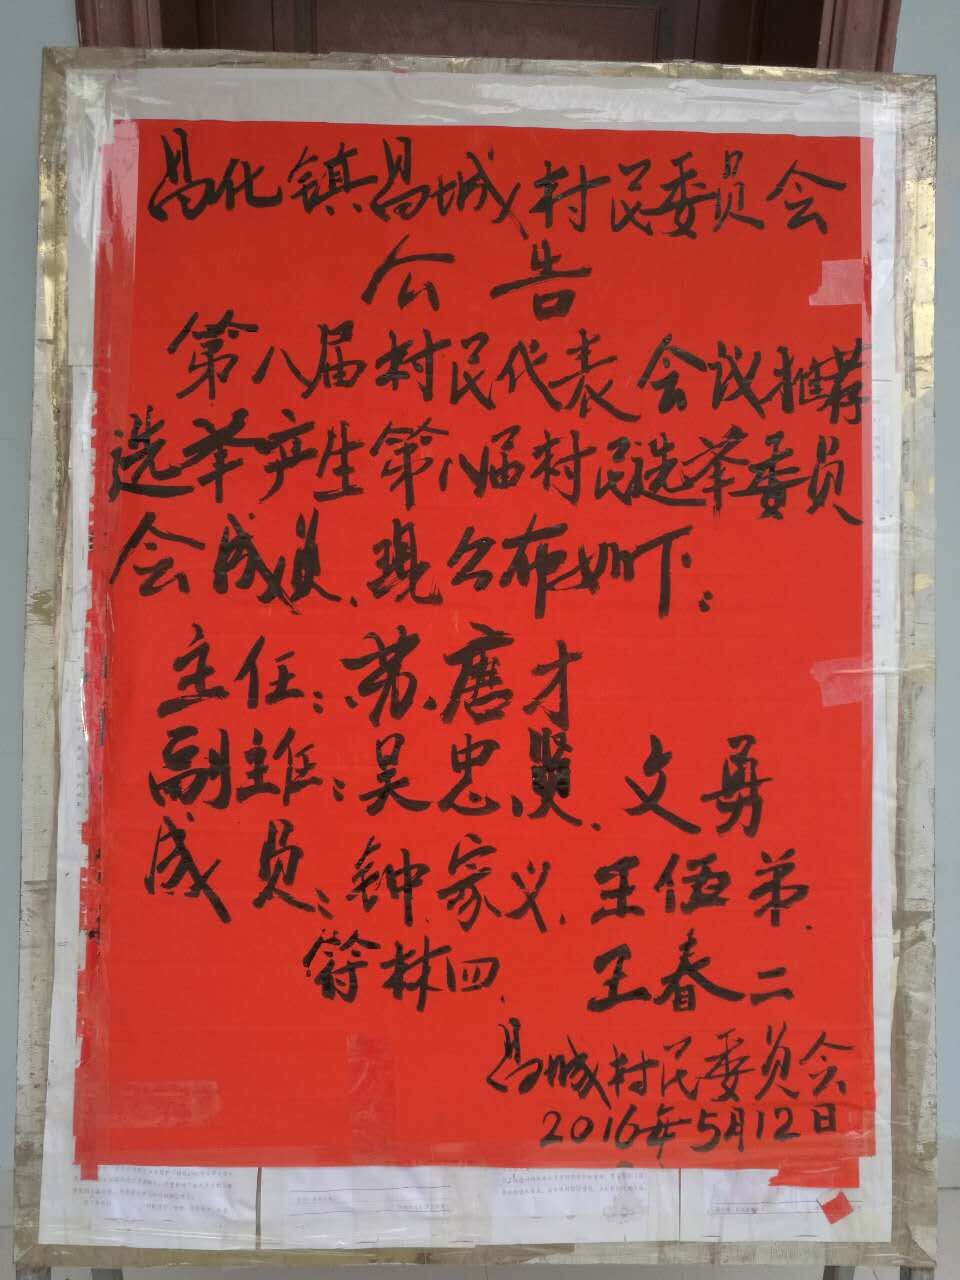 昌化镇昌城村民委员会
公告
第八届村民代表会议推荐
选举产生第八届村民选举委员
会成员、现公布如下：
主任：苏唐才
副主任：吴忠贤、文勇
成员：钟家义、王伍弟、
符林四、王春二
昌城村民委员会
2016年5月12日